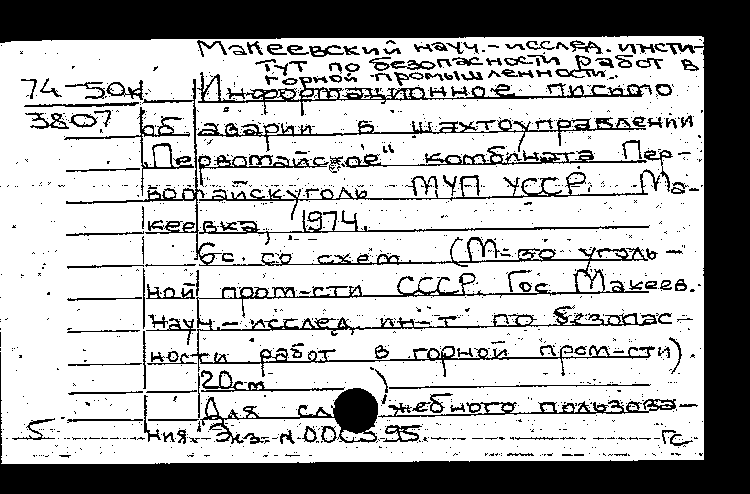 Макеевский науч.-исслед. инсти-
тут по безопасности работ в
горной промышленности.
74-50к Информационное письмо
3807 об аварии в шахтоуправлении
"Первомайское" комбината Пер-
вомайскуголь МУП УССР. Ма-
кеевка, 1974.
6с. со схем. (М-во уголь-
ной пром-сти СССР. Гос. Макеев.
науч.-исслед. ин-т по безопас-
ности работ в горной пром-сти).
20см
Для служебного пользова-
5 ния. Экз. N 000595. ГС